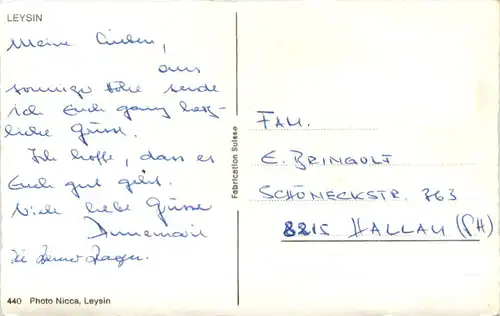 LEYSIN
Meine Lieben,
aus
sonniger Höhe sende
ich Euch ganz herz-
liche Grüsse.
Ich hoffe, dass es
Euch gut geht.
Viele liebe Grüsse
Annemarie
Fabrication Suisse
FAM.
E. BRINGOLF
SCHÖNECKSTR. 263
8215 HALLAU (SH)
440 Photo Nicca, Leysin